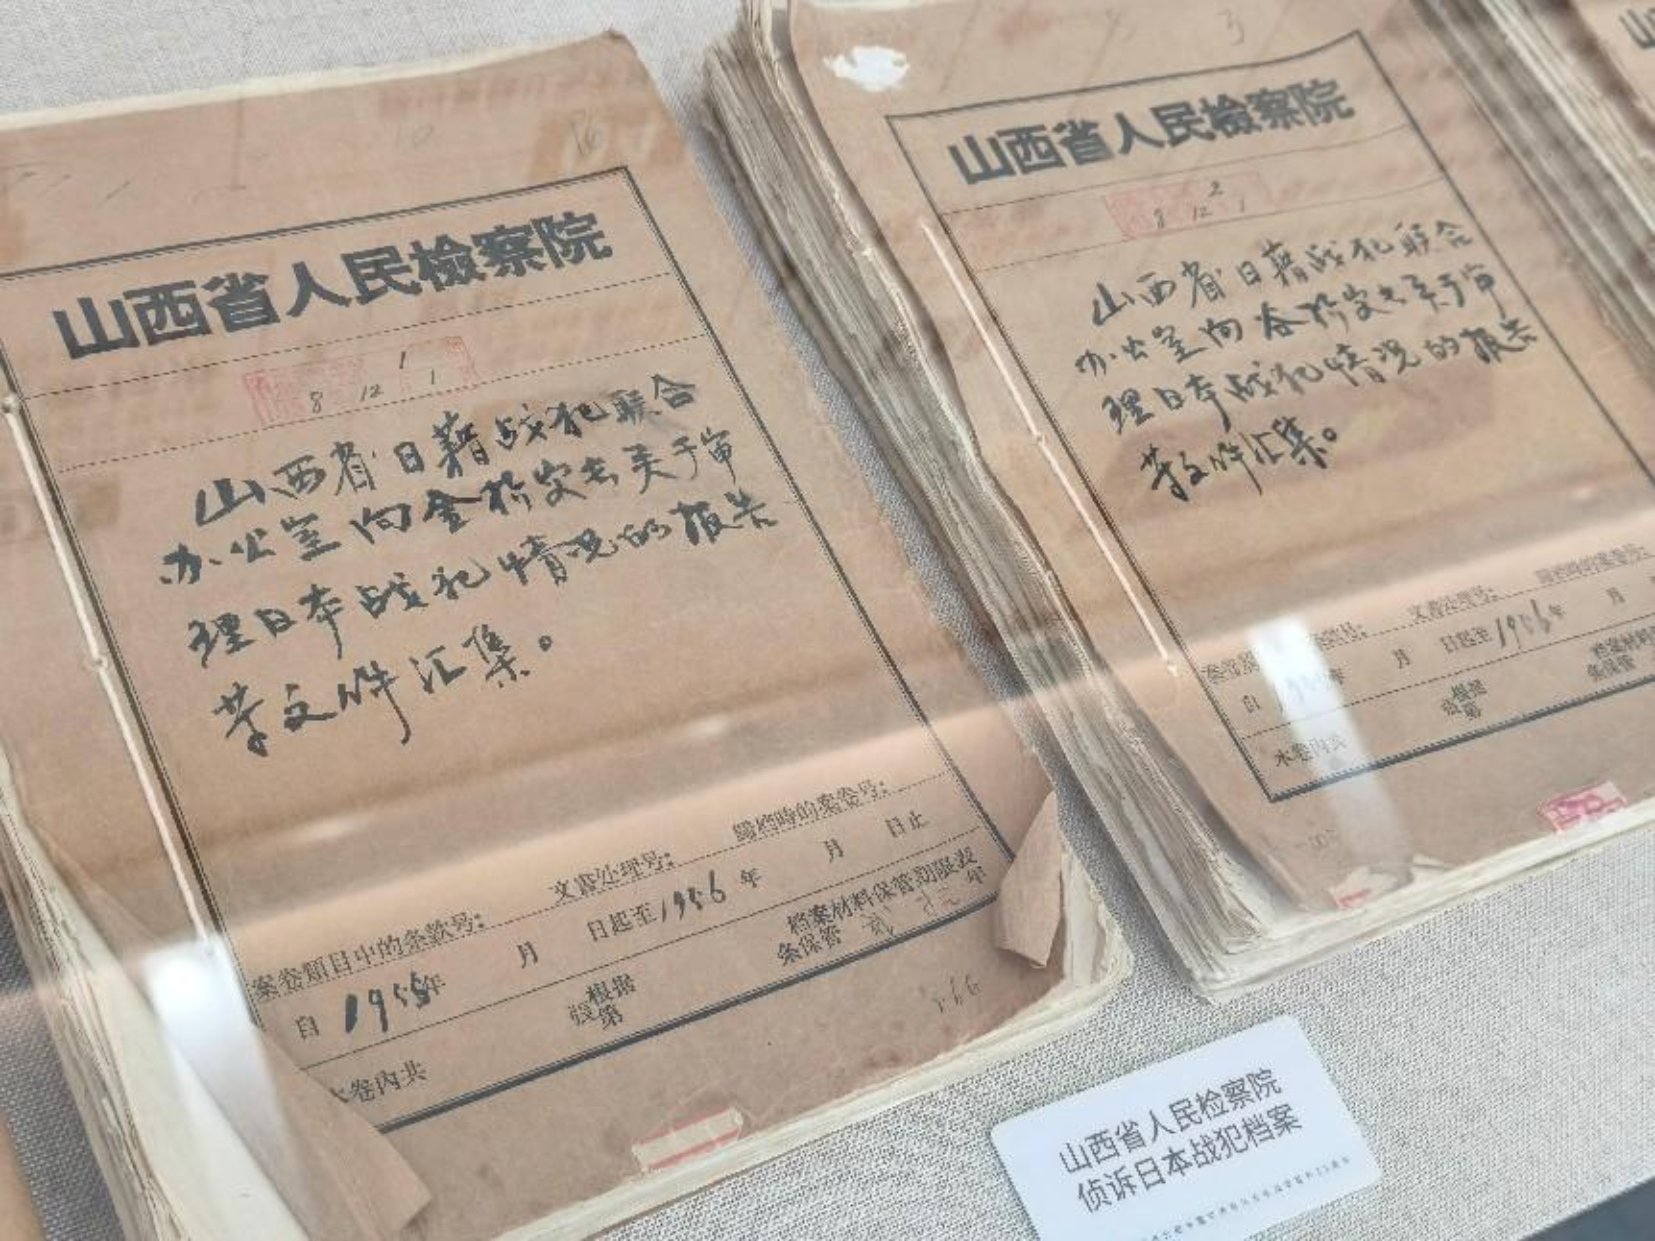 山西省人民檢察院
1
8 12 1
山西省日藉战犯联合
办公室向金析安去关于审
理日本战犯情况的报告
等文件汇集。
案卷類目中的条款号:
文書处理号:
歸档時的案卷号:
自1955年 月 日起至1956年 月 日止
根据
第
档案材料保管期限表
条保管 年
卷内共
山西省人民檢察院
2
8 12 1
山西省日藉战犯联合
办公室向 析安去关于审
理日本战犯情况的报告
等文件汇集。
文書处理号:
歸档時的案卷号:
自 年 月 日起至1956年 月
根据
第
条保管
本卷内共
山西省人民检察院
侦诉日本战犯档案